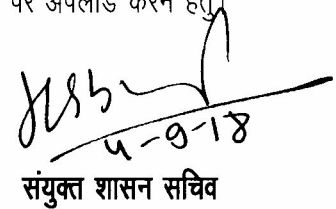 पर अपलोड करने हेतु।
4-9-18
संयुक्त शासन सचिव